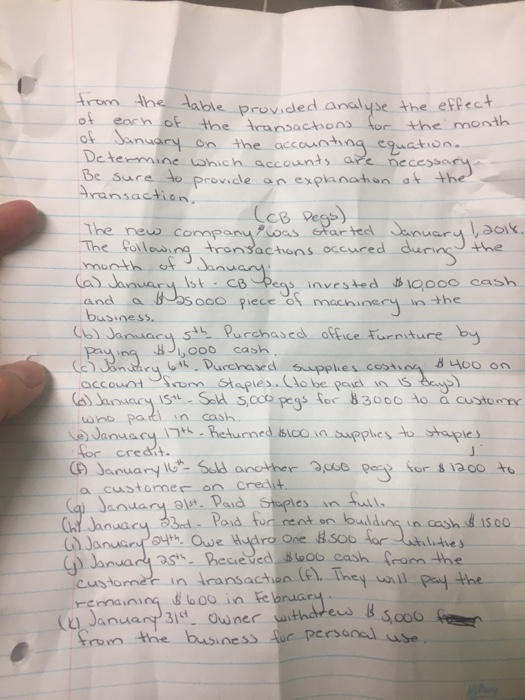 from the table provided analyse the effect
of each of the transactions for the month
of January on the accounting equation.
Determine which accounts are necessary
Be sure to provide an explanation of the
transaction.
(CB Pegs)
The new company was started January 1, 2018.
The following transactions occured during the
month of January:
(a) January 1st - CB Pegs invested $10,000 cash
and a $25000 piece of machinery in the
business.
(b) January 5th Purchased office furniture by
paying $1,000 cash.
(c) January 6th. Purchased supplies costing $400 on
account from Staples. (to be paid in 15 days)
(d) January 15th - Sold 5,000 pegs for $3000 to a customer
who paid in cash.
(e) January 17th - Returned $100 in supplies to staples
for credit.
(f) January 16th - Sold another 2,000 pegs for $1200 to
a customer on credit.
(g) January 21st. Paid Staples in full.
(h) January 23rd - Paid for rent on building in cash $1500
(i) January 24th. Owe Hydro One $500 for utilities
(j) January 25th - Recieved $600 cash from the
customer in transaction (f). They will pay the
remaining $600 in February.
(k) January 31st - Owner withdrew $5,000
from the business for personal use.